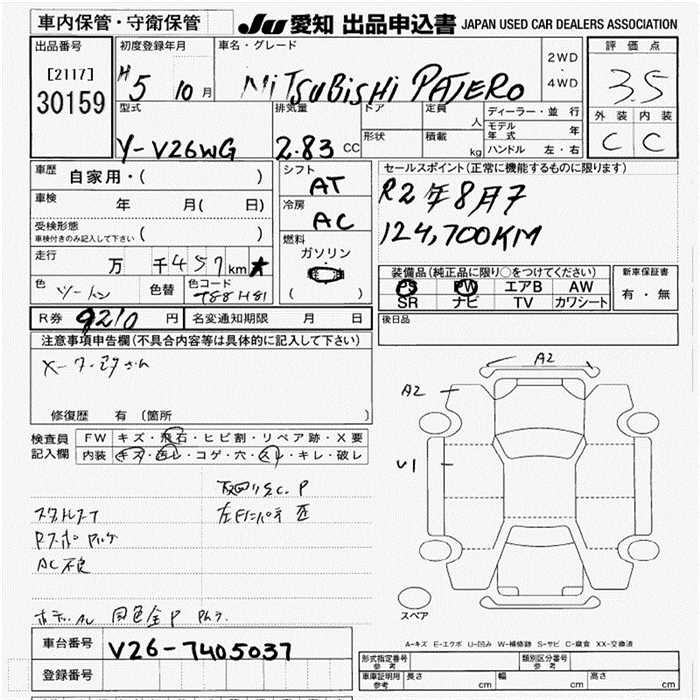 車内保管・守衛保管
JU 愛知 出品申込書 JAPAN USED CAR DEALERS ASSOCIATION
出品番号
[2117]
30159
初度登録年月
H5 10月
車名・グレード
MITSUBISHI PAJERO
2WD
・
4WD
評価点
3.5
外装 内装
C C
型式
Y-V26WG
排気量
2.83 CC
ドア
定員
人
形状
積載
kg
ディーラー・並行
モデル年式 年
ハンドル 左・右
車歴
自家用・( )
車検
年 月( 日)
受検形態
車検付きのみ記入して下さい ( )
走行
万 千457km
色 ツートン
色替
色コード
シフト
AT
冷房
AC
燃料
ガソリン
軽油
( )
セールスポイント(正常に機能するものに限ります)
R2年8月7
124,700KM
装備品(純正品に限り○をつけてください)
PS PW エアB AW
SR ナビ TV カワシート
新車保証書
有・無
R券 9210 円
名変通知期限 月 日
後日品
注意事項申告欄(不具合内容等は具体的に記入して下さい)
修復歴 有 (箇所 )
検査員
記入欄
FW キズ・飛石・ヒビ割・リペア跡・X要
内装 キズ・汚レ・コゲ・穴・スレ・キレ・破レ
AC不良
A2
A2
U1
スペア
A-キズ E-エクボ U-凹み W-補修跡 S-サビ C-腐食 XX-交換済
車台番号
V26-7405037
登録番号
形式指定番号
参考
類別区分番号
参考
車庫証明用
参考
長さ cm
幅 cm
高さ cm